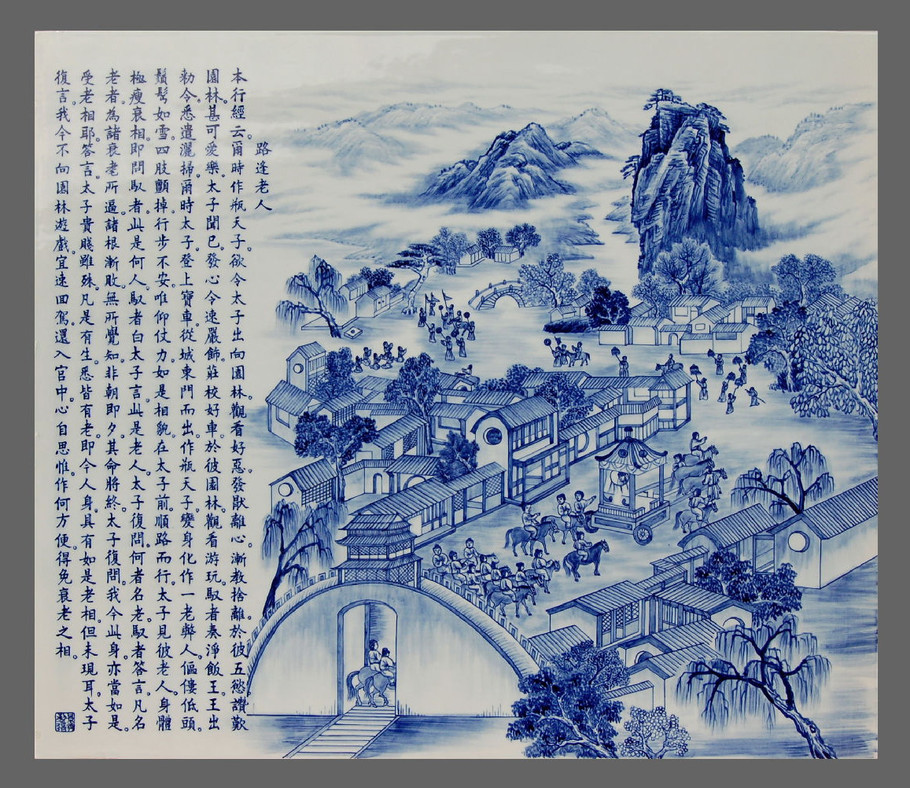 路逢老人
本行經云。爾時作瓶天子。欲令太子出向園林。觀看好惡。發厭離心。漸教捨離。於彼五慾。讚歎
園林。甚可愛樂。太子聞已。發心令速嚴飾莊校好車。於彼園林。觀看游玩。馭者奏淨飯王。王出
勑令悉遣灑掃。爾時太子。登上寶車。從城東門而出。作瓶天子。變身化作一老弊人。傴僂低頭。
鬚髩如雪。四肢顫掉。行步不安。唯仰仗力。如是相貌。在太子前。順路而行。太子見彼老人。身體
極瘦衰相。即問馭者。此是何人。馭者白太子言。此是老人。太子復問。何者名老。馭者答言。凡名
老者。為諸衰耄所逼。諸根漸敗。無所覺知。非朝即夕。其命將終。太子復問。我今此身。亦當如是。
受老相耶。答言。太子貴賤雖殊。凡是有生。悉皆有老。即今人身。具有如是老相。但未現耳。太子
復言。我今不向園林遊戲。宜速回駕。還入宮中。心自思惟。作何方便。得免衰老之相。